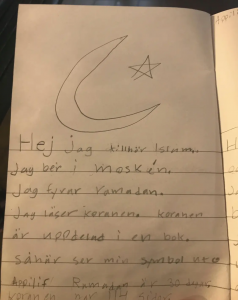 Hej jag tillhör Islam.
Jag ber i moskén.
Jag fyrar ramadan.
Jag läser koranen. koranen
är uppdelad i en bok.
såhär ser min symbol ut
Ramadan är 30 dagar
koranen har 114